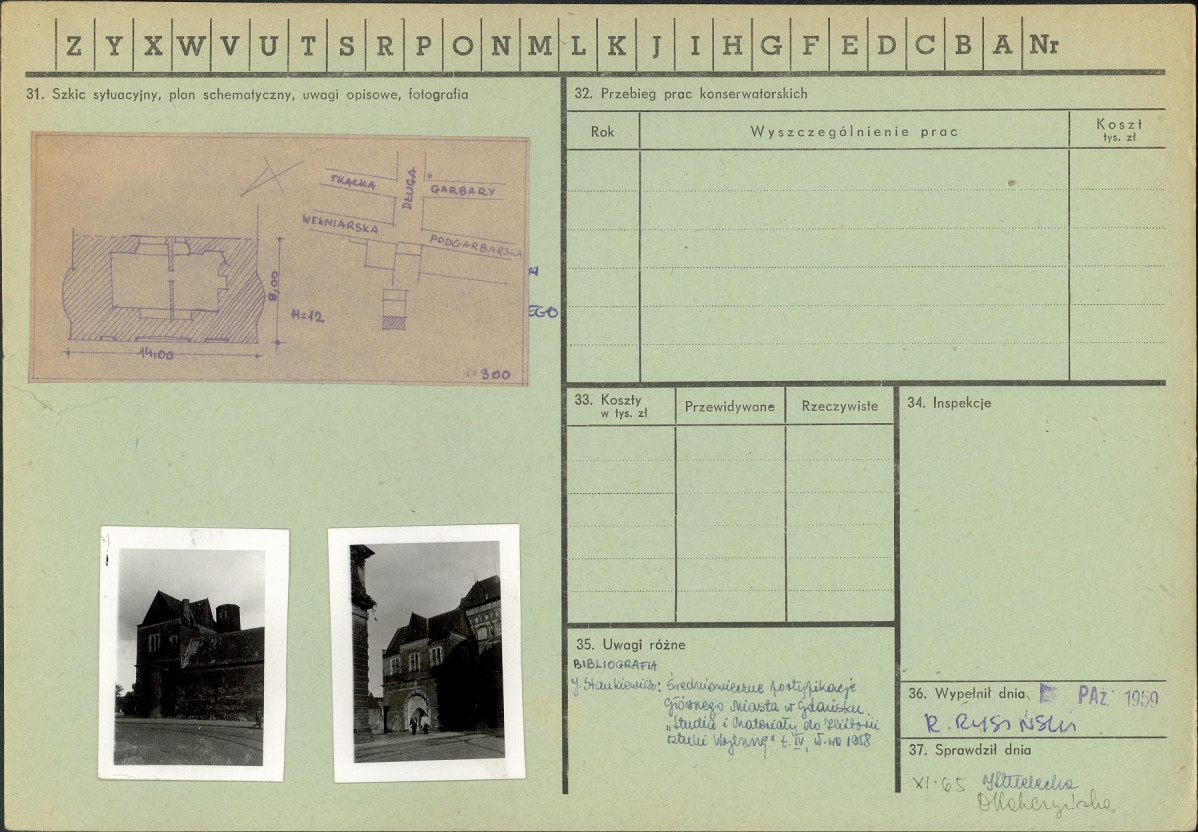 Z Y X W V U T S R P O N M L K J I H G F E D C B A Nr
31. Szkic sytuacyjny, plan schematyczny, uwagi opisowe, fotografia
TKACKA
DŁUGA
GARBARY
WEŁNIARSKA
PODGARBARSKA
8,00
H=12
14.00
1:300
EGO
32. Przebieg prac konserwatorskich
Rok
Wyszczególnienie prac
Koszt
tys. zł
33. Koszty
w tys. zł
Przewidywane
Rzeczywiste
34. Inspekcje
35. Uwagi różne
BIBLIOGRAFIA
J. Stankiewicz: Średniowieczne fortyfikacje
Głównego Miasta w Gdańsku
"Studia i Materiały do Historii
sztuki Wojennej" t. IV, W-wa 1958
36. Wypełnił dnia
PAŹ 1959
R. RYSIŃSKI
37. Sprawdził dnia
XI.65